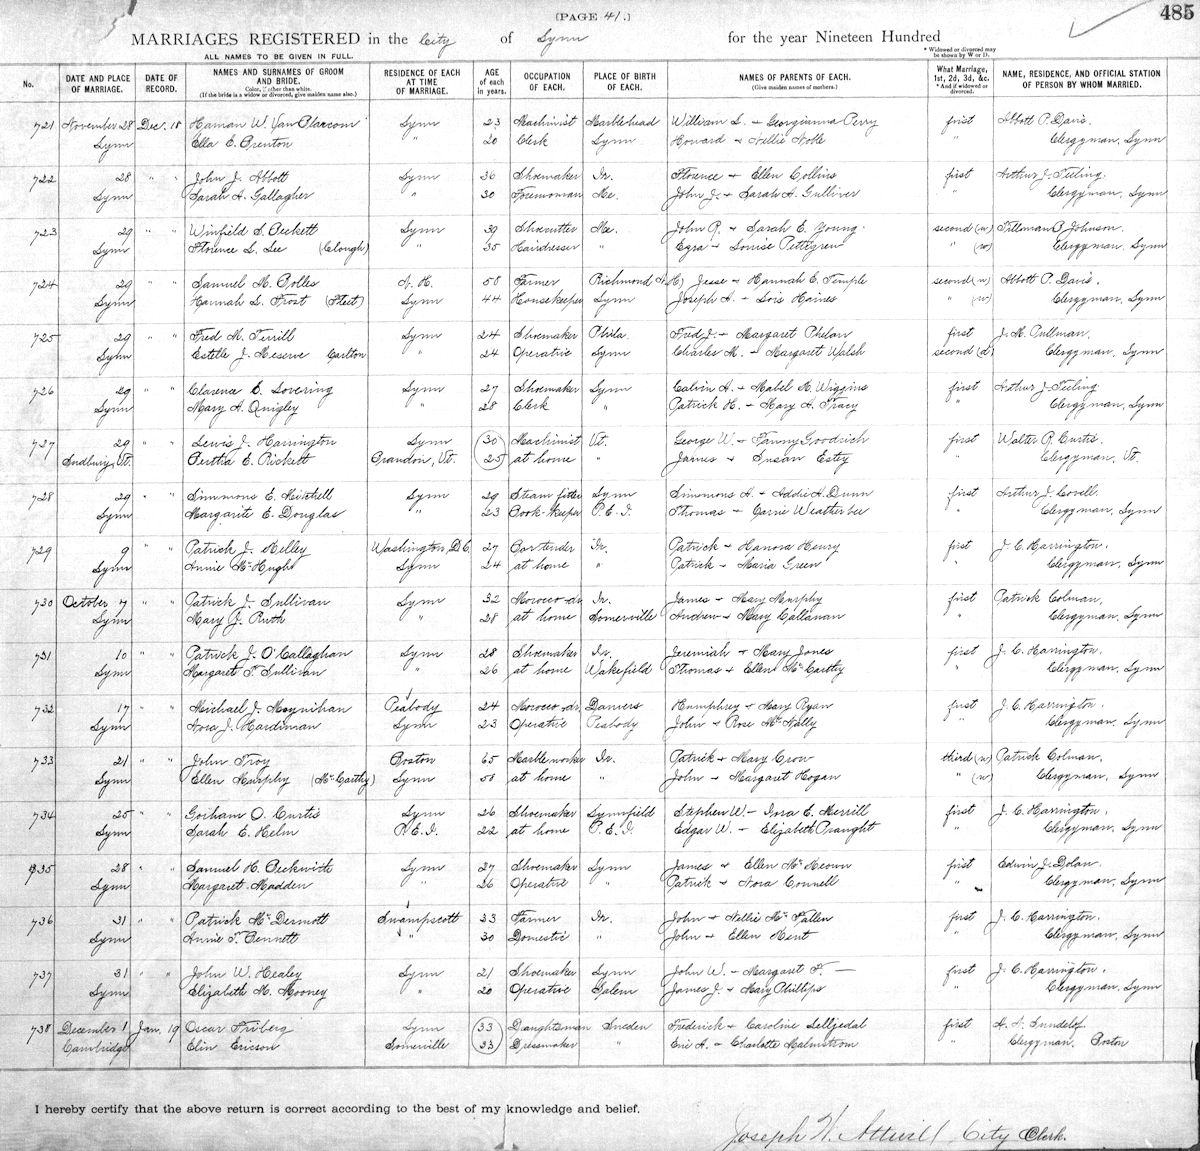 (PAGE 41.)
485
MARRIAGES REGISTERED in the City of Lynn for the year Nineteen Hundred
ALL NAMES TO BE GIVEN IN FULL.
* Widowed or divorced may be shown by W or D.
No. DATE AND PLACE OF MARRIAGE. DATE OF RECORD. NAMES AND SURNAMES OF GROOM AND BRIDE. Color, if other than white. (If the bride is a widow or divorced, give maiden name also.) RESIDENCE OF EACH AT TIME OF MARRIAGE. AGE of each in years. OCCUPATION OF EACH. PLACE OF BIRTH OF EACH. NAMES OF PARENTS OF EACH. (Give maiden names of mothers.) What Marriage, 1st, 2d, 3d, &c. * And if widowed or divorced. NAME, RESIDENCE, AND OFFICIAL STATION OF PERSON BY WHOM MARRIED.
721 November 28 Dec. 18 Haman W. Van Blarcom Lynn 23 Machinist Marblehead William L. - Georgianna Perry first Abbott P. Davis.
Lynn Ella E. Brenton " 20 Clerk Lynn Howard - Nellie Noble " Clergyman, Lynn
722 28 " " John J. Abbott Lynn 36 Shoemaker Ir. Florence - Ellen Collins first Arthur J. Teeling.
Lynn Sarah A. Gallagher " 30 Forewoman Me. John J. - Sarah A. Gulliver " Clergyman, Lynn
723 29 " " Winfield S. Beckett Lynn 39 Shoecutter Me. John R. - Sarah E. Young second (w) Tillman B. Johnson.
Lynn Florence L. Lee (Clough) " 35 Hairdresser " Ezra - Louise Pettegrew " (w) Clergyman, Lynn
724 29 " " Samuel M. Bolles N. H. 58 Farmer Richmond (N.H) Jesse - Hannah E. Temple second (w) Abbott P. Davis.
Lynn Hannah L. Frost (Fleet) Lynn 44 Housekeeper Lynn Joseph A. - Lois Haines " (w) Clergyman, Lynn
725 29 " " Fred M. Terrill Lynn 24 Shoemaker Phila. Fred J. - Margaret Phelan first J. M. Pullman.
Lynn Estelle J. Meserve Carlton " 24 Operative Lynn Charles M. - Margaret Walsh second (d) Clergyman, Lynn
726 29 " " Clarence E. Lovering Lynn 27 Shoemaker Lynn Calvin A. - Mabel M. Wiggins first Arthur J. Teeling
Lynn Mary A. Quigley " 28 Clerk " Patrick H. - Mary A. Tracy " Clergyman, Lynn
727 29 " " Lewis J. Harrington Lynn 30 Machinist Vt. George W. - Fanny Goodrich first Walter R. Curtis.
Sudbury, Vt. Bertha E. Rickett Brandon, Vt. 25 at home " James - Susan Estey " Clergyman, Vt.
728 29 " " Simmons E. Mitchell Lynn 29 Steam fitter Lynn Simmons A. - Addie H. Dunn first Arthur J. Covell.
Lynn Margarite E. Douglas " 23 Book-keeper P. E. I. Thomas - Carrie Weatherbee " Clergyman, Lynn
729 9 " " Patrick J. Kelley Washington, D.C. 27 Bar tender Ir. Patrick - Hanora Henry first J. C. Harrington.
Lynn Annie McHugh Lynn 24 at home " Patrick - Maria Green " Clergyman, Lynn
730 October 7 " " Patrick J. Sullivan Lynn 32 Morocco-dr. Ir. James - Mary Murphy first Patrick Colman,
Lynn Mary J. Ruth " 28 at home Somerville Andrew - Mary Callanan " Clergyman, Lynn
731 10 " " Patrick J. O'Callaghan Lynn 28 Shoemaker Ir. Jeremiah - Mary Jones first J. C. Harrington.
Lynn Margaret T. Sullivan " 26 at home Wakefield Thomas - Ellen McCarthy " Clergyman, Lynn
732 17 " " Michael J. Moynihan Peabody 24 Morocco-dr. Danvers Humphrey - Mary Ryan first J. C. Harrington.
Lynn Nora J. Hardiman Lynn 23 Operative Peabody John - Rose McNally " Clergyman, Lynn
733 21 " " John Troy Boston 65 Marble worker Ir. Patrick - Mary Crow third (w) Patrick Colman.
Lynn Ellen Murphy (McCarthy) Lynn 50 at home " John - Margaret Hogan " (w) Clergyman, Lynn
734 25 " " Gorham O. Curtis Lynn 26 Shoemaker Lynnfield Stephen W - Dora E. Merrill first J. C. Harrington.
Lynn Sarah E. Helm P. E. I. 22 at home P. E. I. Edgar W. - Elizabeth Praught " Clergyman, Lynn
735 28 " " Samuel H. Beckwith Lynn 27 Shoemaker Lynn James - Ellen McKeown first Edwin J. Dolan.
Lynn Margaret Madden " 26 Operative " Patrick - Nora Connell " Clergyman, Lynn
736 31 " " Patrick McDermott Swampscott 33 Farmer Ir. John - Nellie McFallen first J. C. Harrington.
Lynn Annie T. Bennett " 30 Domestic " John - Ellen Kent " Clergyman, Lynn
737 31 " " John W. Healey Lynn 21 Shoemaker Lynn John W. - Margaret F. — first J. C. Harrington.
Lynn Elizabeth M. Mooney " 20 Operative Salem James J. - Mary Phillips " Clergyman, Lynn
738 December 1 Jan. 19 Oscar Friberg Lynn 33 Draughtsman Sweden Frederick - Caroline Selljedal first H. N. Sundelof.
Cambridge Elin Ericson Somerville 33 Dressmaker " Eric A. - Charlotte Malmstrom " Clergyman. Boston
I hereby certify that the above return is correct according to the best of my knowledge and belief.
Joseph W. Attwill City Clerk.